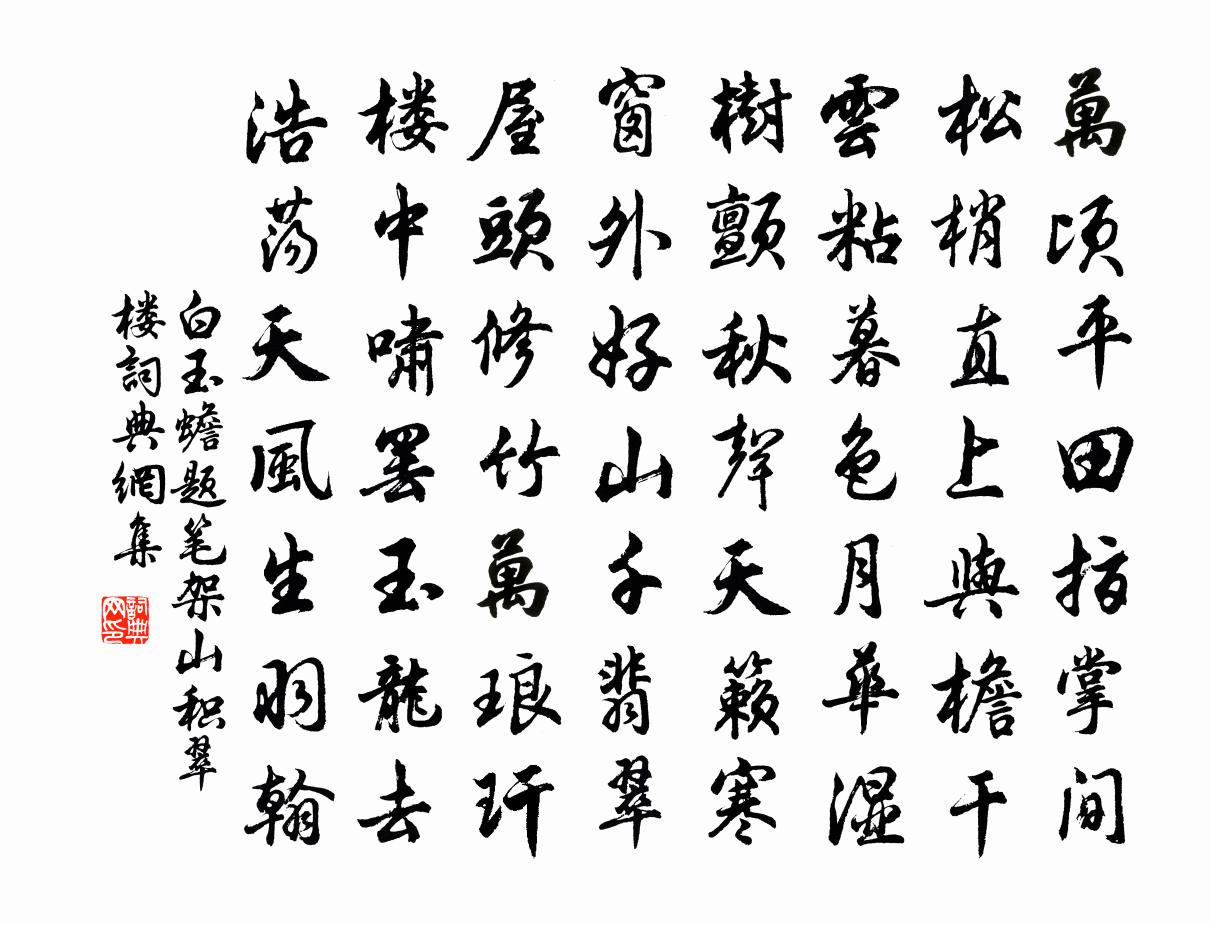 萬頃平田指掌間
松梢直上與檐干
雲粘暮色月華濕
樹顫秋聲天籟寒
窗外好山千翡翠
屋頭修竹萬琅玕
楼中嘯罢玉龍去
浩荡天風生羽翰
白玉蟾題笔架山积翠
楼詞典網集
詞典
网印